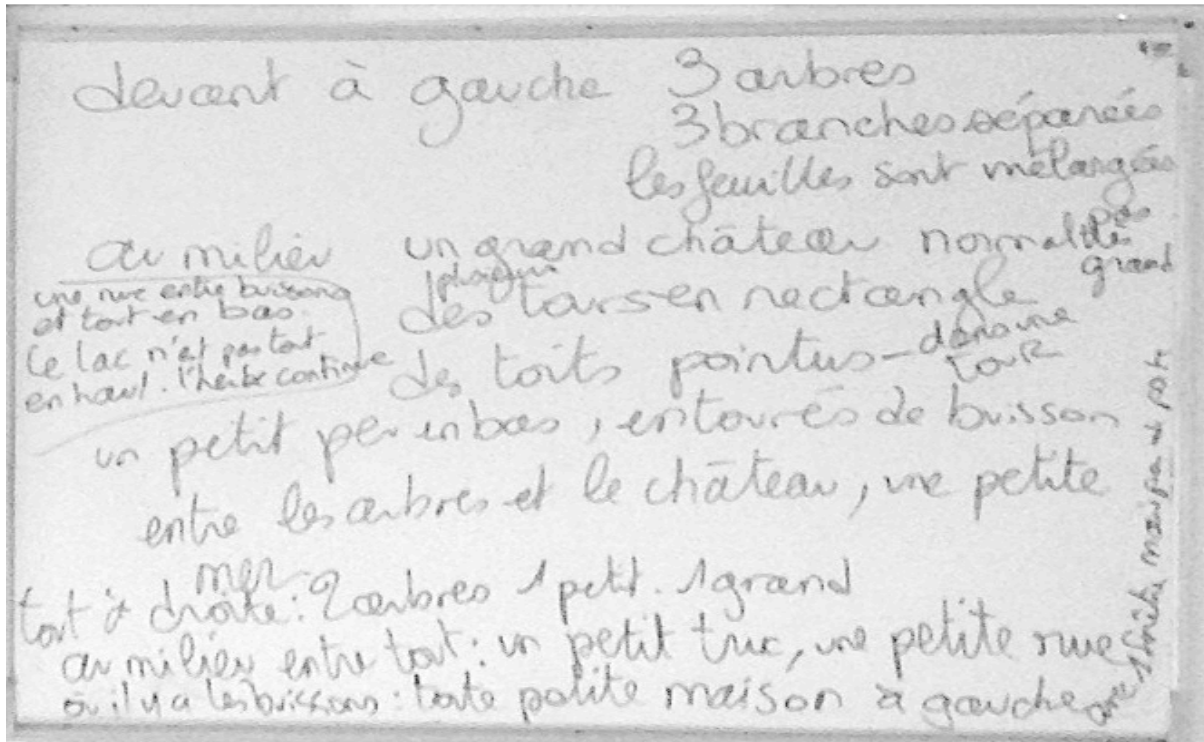 devant à gauche 3 arbres
3 branches séparées
les feuilles sont mélangées
au milieu un grand château normal pas très grand
une rue entre buissons
et tout en bas.
Le lac n'est pas tout
en haut. l'herbe continue
plusieurs
des tours en rectangle
des toits pointus - dans une tour
un petit peu en bas, entourés de buisson
entre les arbres et le château, une petite
mer
tout à droite: 2 arbres 1 petit. 1 grand
au milieu entre tout: un petit truc, une petite rue
où il y a les buissons: toute petite maison à gauche